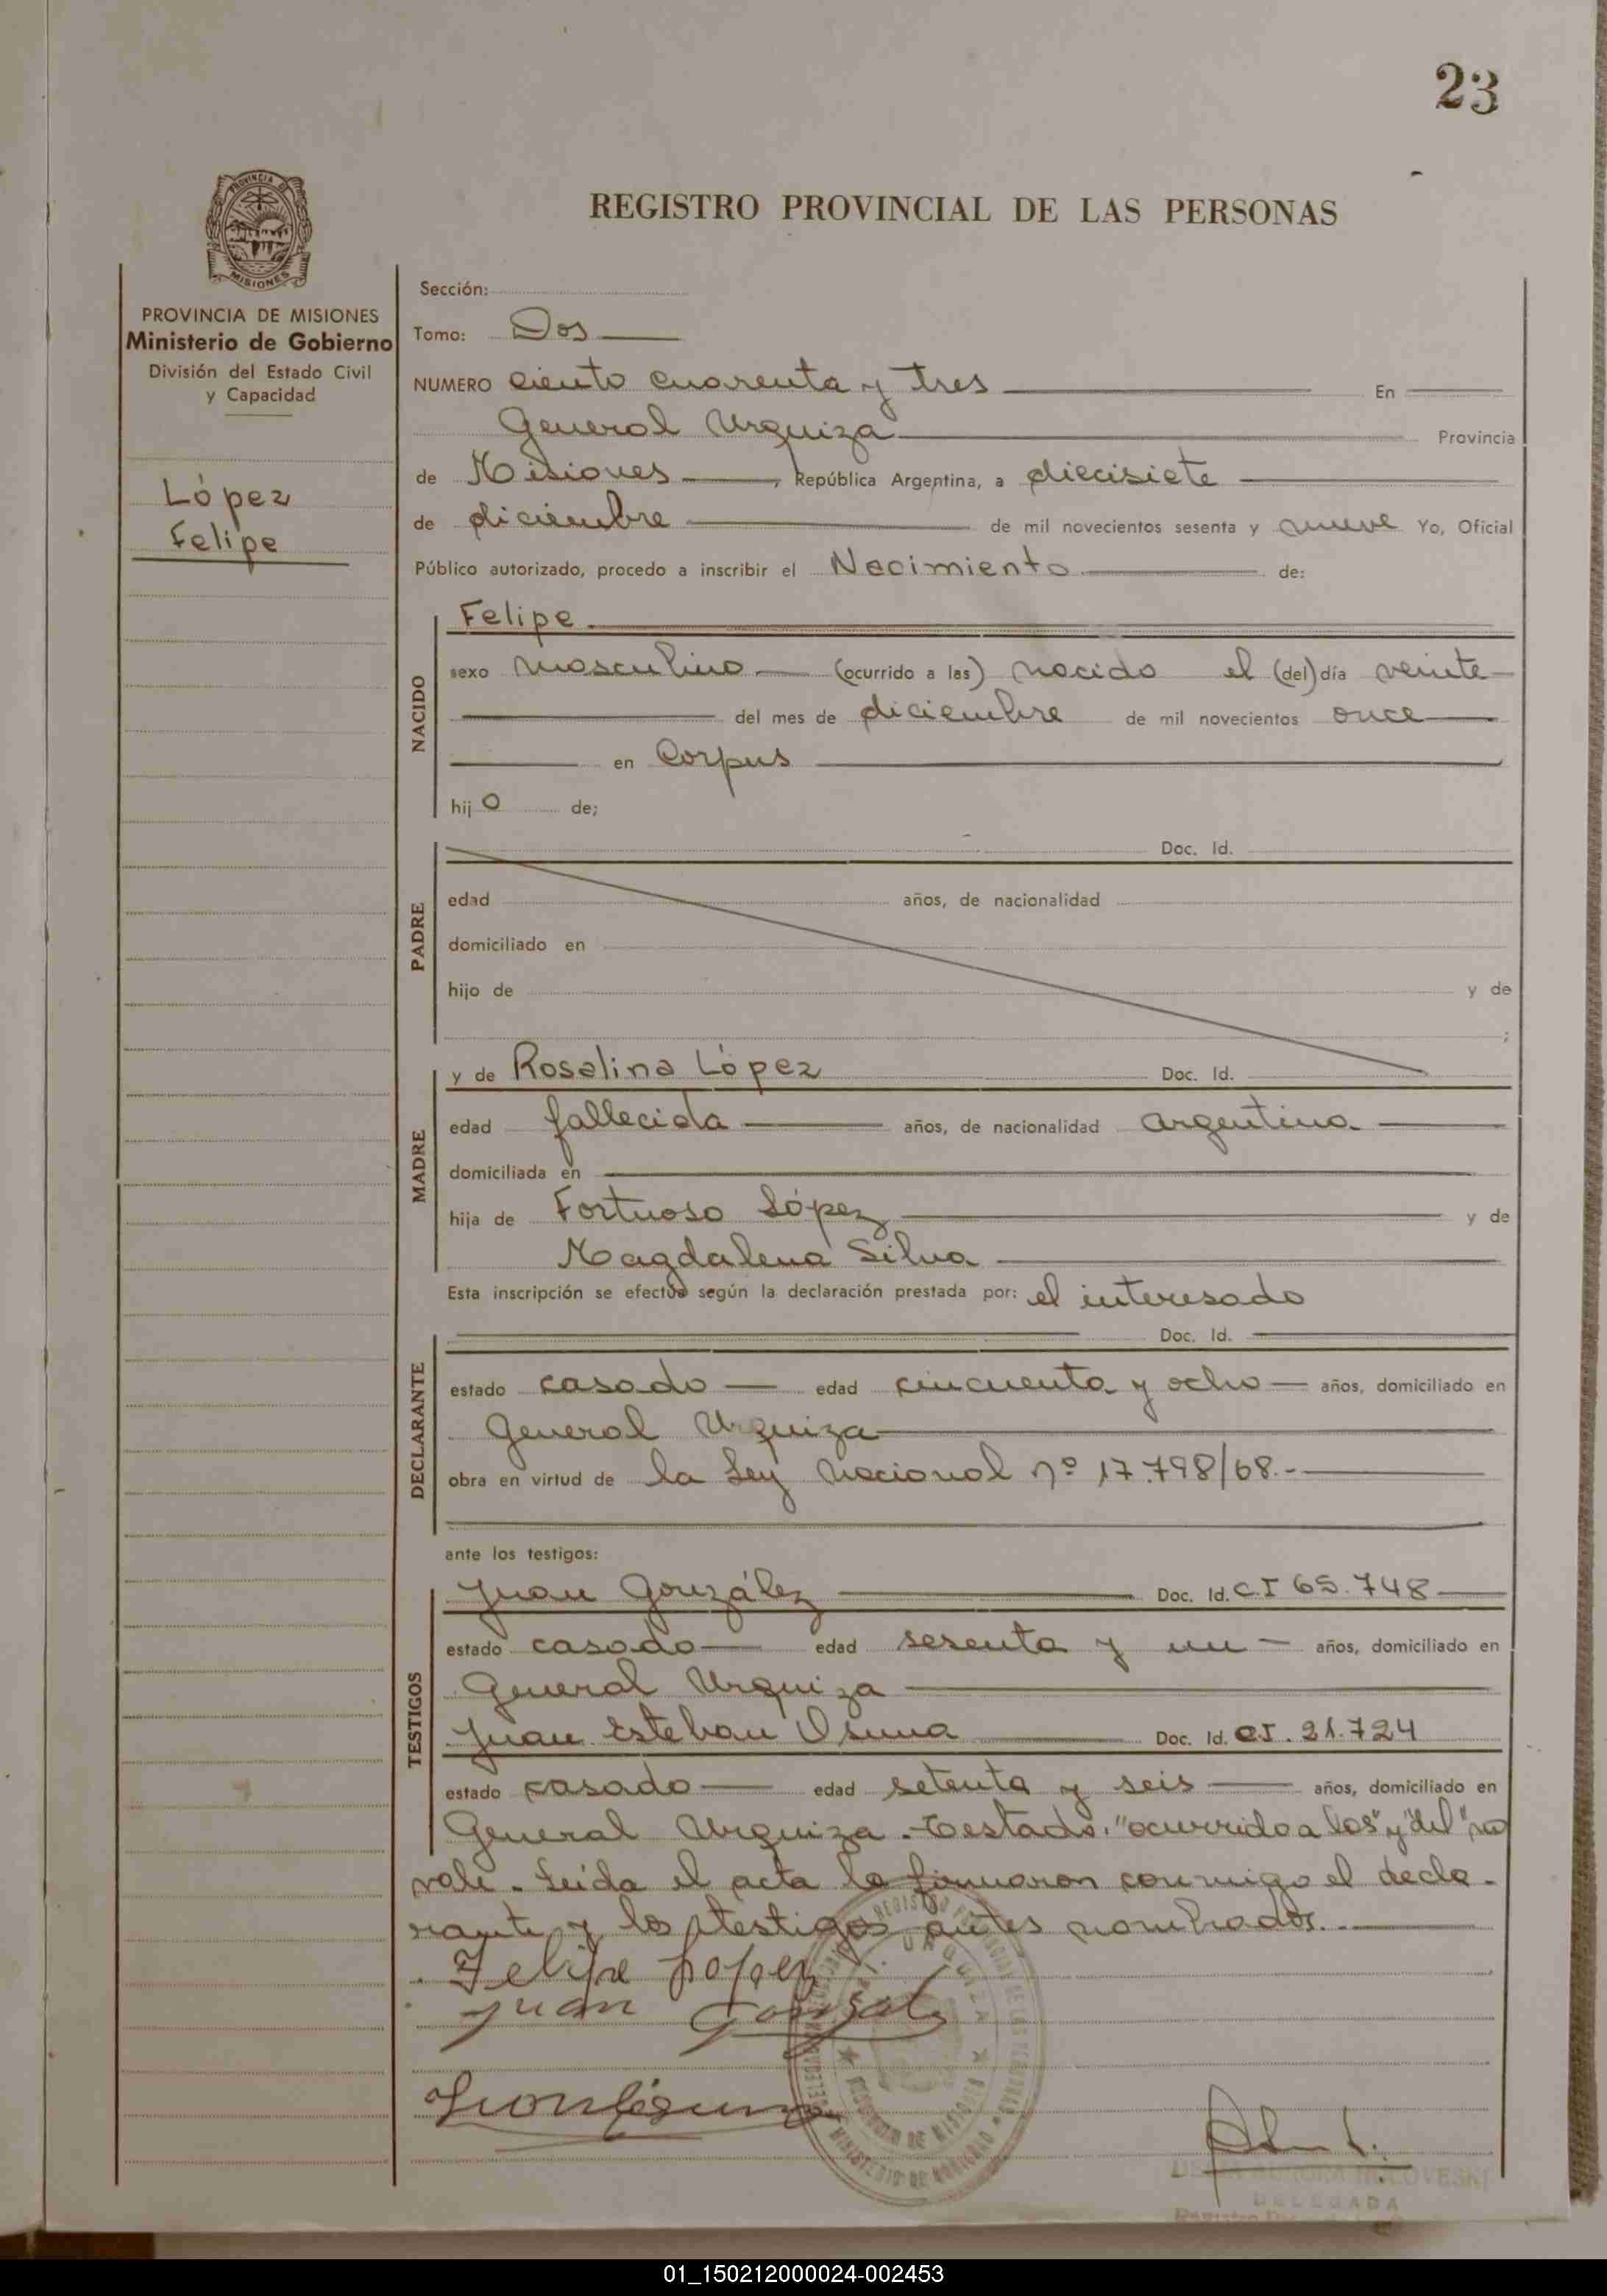 23
PROVINCIA DE
MISIONES
REGISTRO PROVINCIAL DE LAS PERSONAS
PROVINCIA DE MISIONES
Ministerio de Gobierno
División del Estado Civil
y Capacidad
López
Felipe
Sección:
Tomo: Dos
NUMERO ciento cuarenta y tres En
General Urquiza Provincia
de Misiones, República Argentina, a diecisiete
de diciembre de mil novecientos sesenta y nueve Yo, Oficial
Público autorizado, procedo a inscribir el Nacimiento de:
NACIDO
Felipe
sexo masculino (ocurrido a las) nacido el (del) día veinte
del mes de diciembre de mil novecientos once
en Corpus
hijo de;
PADRE
Doc. Id.
edad años, de nacionalidad
domiciliado en
hijo de y de
;
MADRE
y de Rosalina López Doc. Id.
edad fallecida años, de nacionalidad argentina
domiciliada en
hija de Fortuoso López y de
Magdalena Silva
Esta inscripción se efectúa según la declaración prestada por: el interesado
DECLARANTE
Doc. Id.
estado casado edad cincuenta y ocho años, domiciliado en
General Urquiza
obra en virtud de la Ley Nacional nº 17.798/68.-
ante los testigos:
TESTIGOS
Juan González Doc. Id. C.I 65.748
estado casado edad sesenta y un años, domiciliado en
General Urquiza
Juan Esteban Osuna Doc. Id. C.I. 21.724
estado casado edad setenta y seis años, domiciliado en
General Urquiza. Testado: "ocurrido a las" y "del" no
vale. Leída el acta la firmaron conmigo el decla-
rante y los testigos antes nombrados.
Felipe Lopez
Juan Gonzalez
DELEGADA
01_150212000024-002453